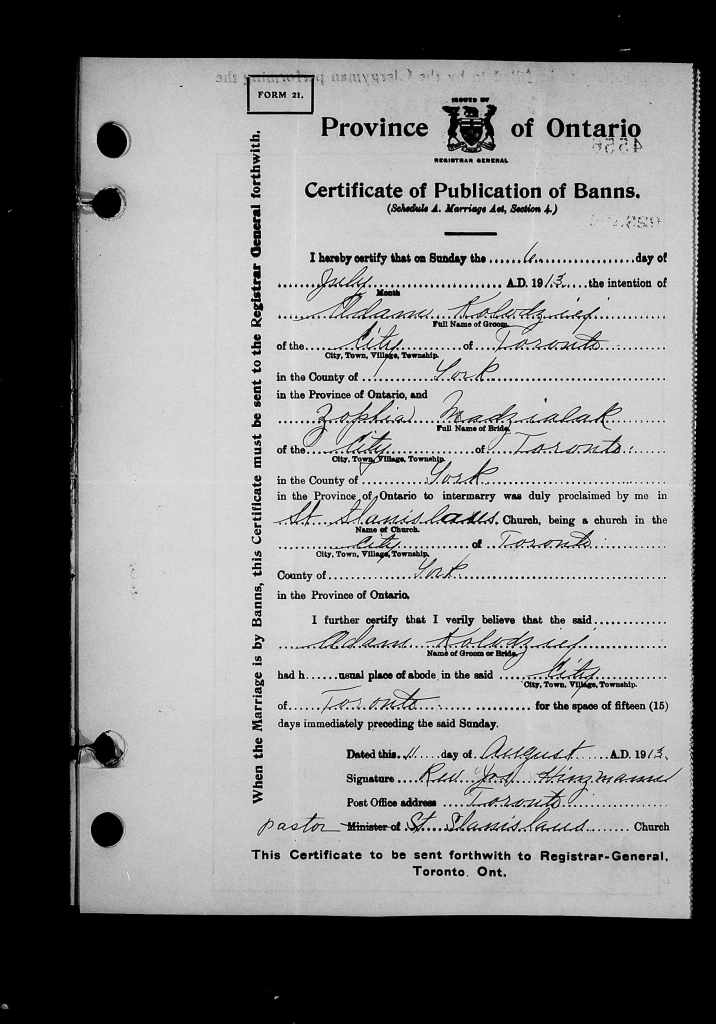 FORM 21.
ISSUED BY
Province of Ontario
REGISTRAR GENERAL
Certificate of Publication of Banns.
(Schedule A. Marriage Act, Section 4.)
When the Marriage is by Banns, this Certificate must be sent to the Registrar General forthwith.
I hereby certify that on Sunday the 6 day of
July A.D. 1913 the intention of
Month
Adam Kolodziej
Full Name of Groom.
of the City of Toronto
City, Town, Village, Township.
in the County of York
in the Province of Ontario, and
Zophia Madzialak
Full Name of Bride.
of the City of Toronto
City, Town, Village, Township.
in the County of York
in the Province of Ontario to intermarry was duly proclaimed by me in
St Stanislaus Church, being a church in the
Name of Church.
City of Toronto
City, Town, Village, Township.
County of York
in the Province of Ontario.
I further certify that I verily believe that the said
Adam Kolodziej
Name of Groom or Bride.
had h usual place of abode in the said City
City, Town, Village, Township.
of Toronto for the space of fifteen (15)
days immediately preceding the said Sunday.
Dated this 11 day of August A.D. 1913.
Signature Rev Jos Hinzmann
Post Office address Toronto
pastor Minister of St Stanislaus Church
This Certificate to be sent forthwith to Registrar-General,
Toronto, Ont.